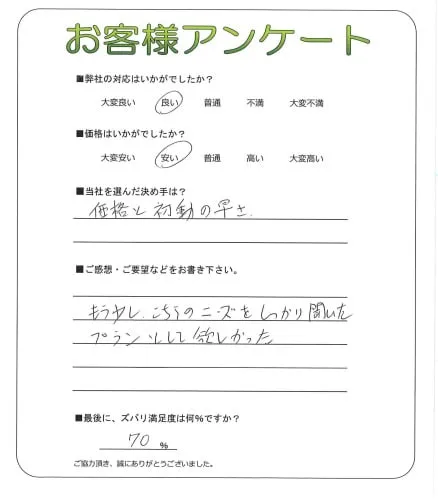 お客様アンケート
■弊社の対応はいかがでしたか？
大変良い 良い 普通 不満 大変不満
■価格はいかがでしたか？
大変安い 安い 普通 高い 大変高い
■当社を選んだ決め手は？
価格と初動の早さ.
■ご感想・ご要望などをお書き下さい。
もう少し、こちらのニーズをしっかり聞いた
プランにして欲しかった
■最後に、ズバリ満足度は何%ですか？
70 %
ご協力頂き、誠にありがとうございました。